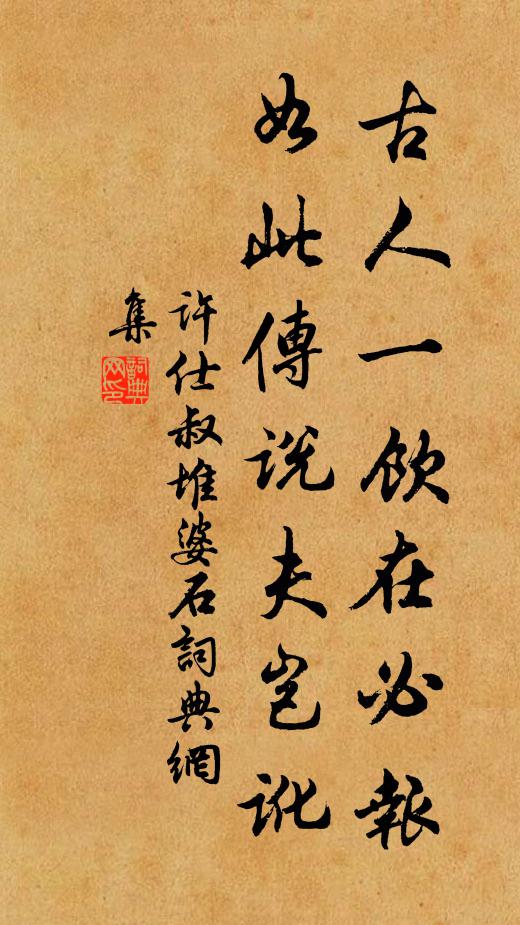 古人一飲在必報
如此傳說夫豈訛
許仕叔堆婆石詞典網
集
詞典
網印